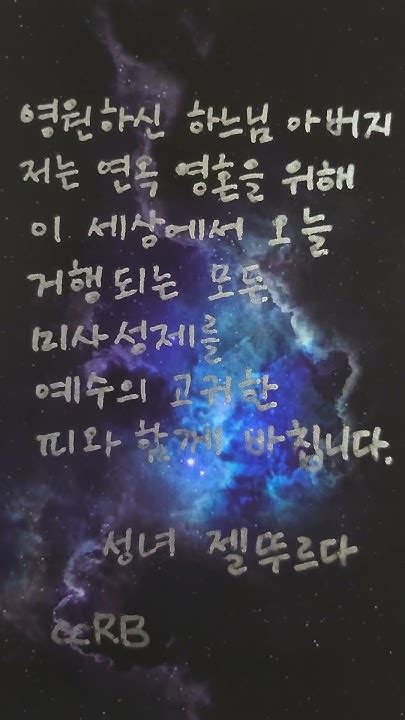 영원하신 하느님 아버지
저는 연옥 영혼을 위해
이 세상에서 오늘
거행되는 모든
미사성제를
예수의 고귀한
피와 함께 바칩니다.
성녀 젤뚜르다
ccRB